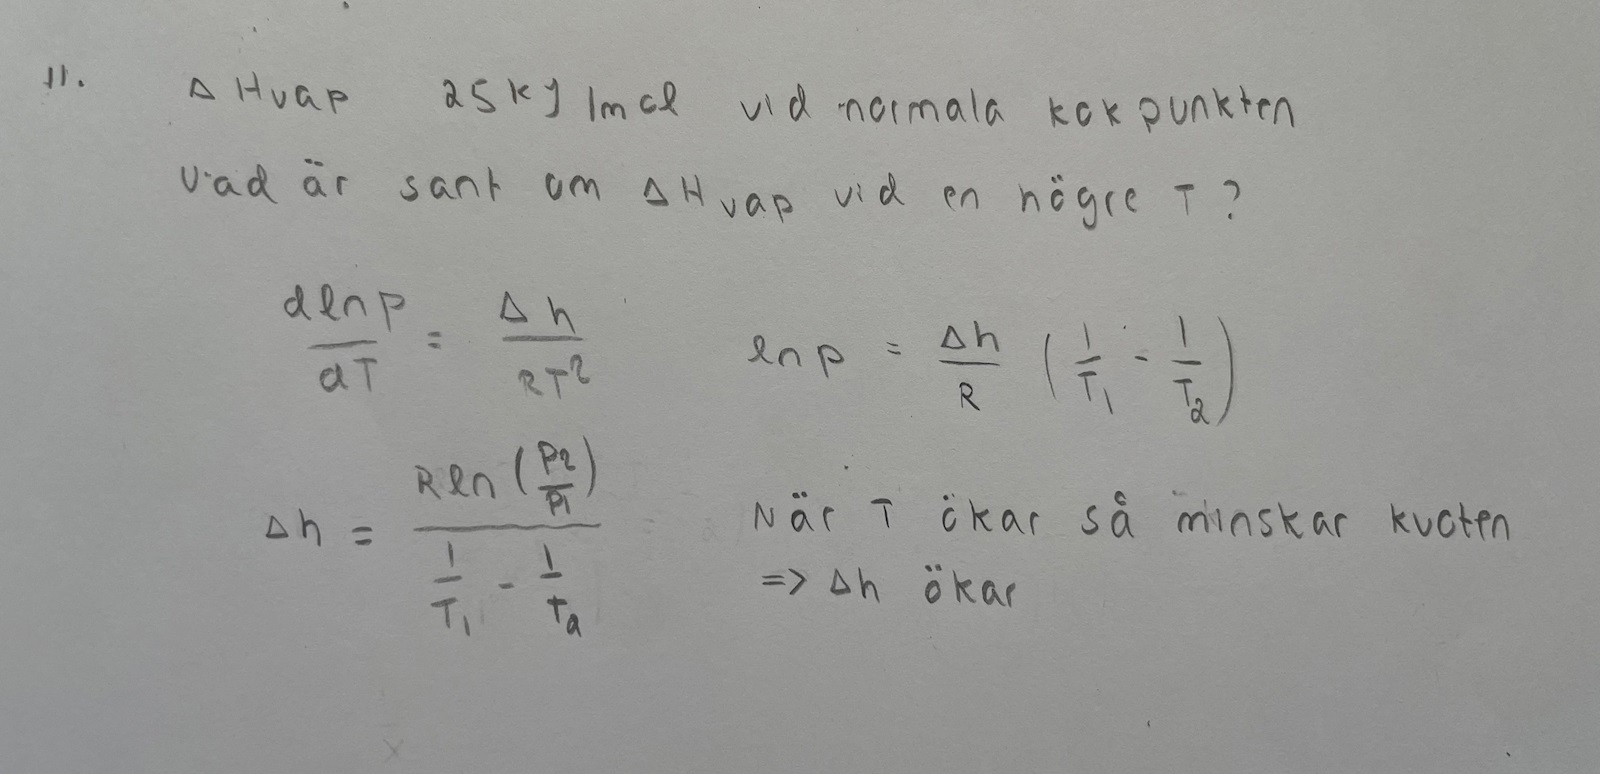 11. ΔHvap 25 kJ/mol vid normala kokpunkten
Vad är sant om ΔHvap vid en högre T?
dlnp/dT = Δh/RT² lnp = Δh/R (1/T₁ - 1/T₂)
Δh = Rln(p₂/p₁) / (1/T₁ - 1/T₂) När T ökar så minskar kvoten
=> Δh ökar